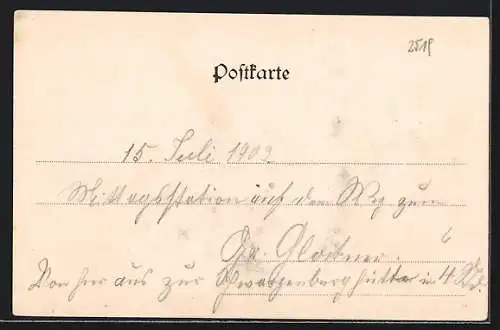 2518
Postkarte
15. Juli 1902
Mittagsstation auf dem Weg zum
Gr. Glockner.
Von hier aus zur Schwarzenberghütte in 4